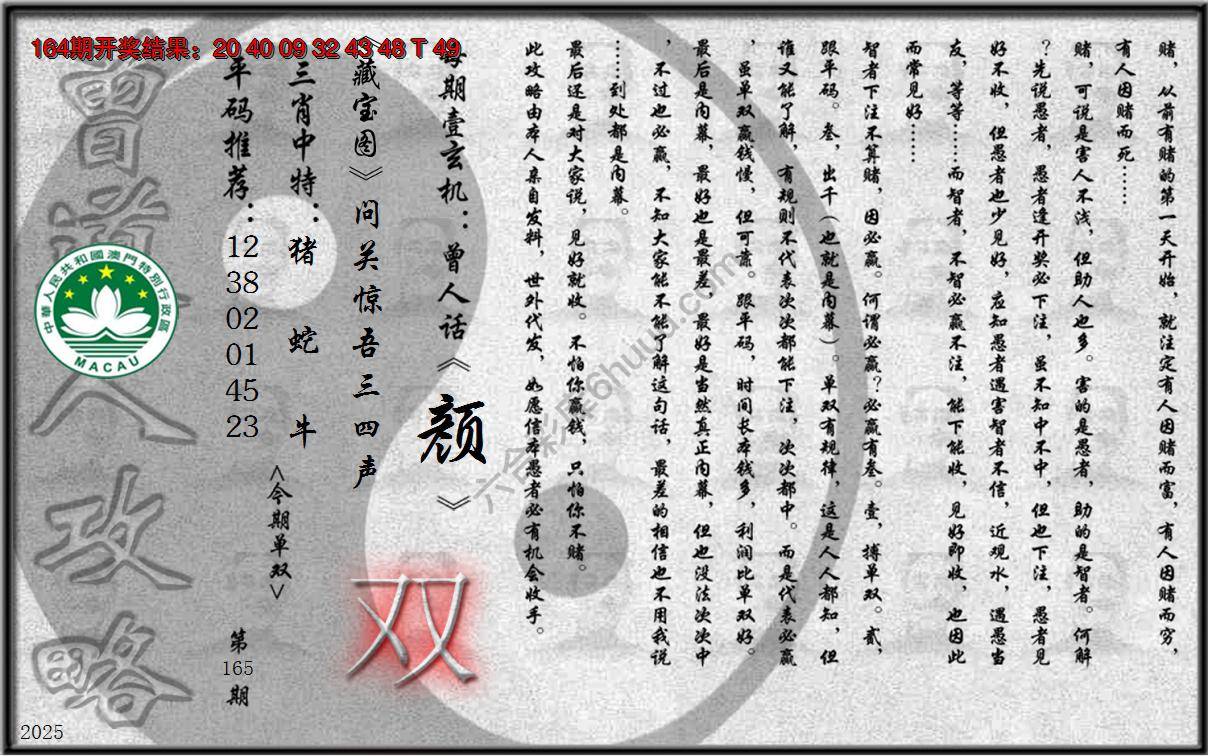 164期开奖结果：20 40 09 32 43 48 T 49
赌，从前有赌的第一天开始，就注定有人因赌而富，有人因赌而穷，
有人因赌而死……
赌，可说是害人不浅，但助人也多。害的是愚者，助的是智者。何解
？先说愚者，愚者逢开奖必下注，虽不知中不中，但也下注，愚者见
好不收，但愚者也少见好，应知愚者遇害智者不信，近观水，遇愚当
友，等等……而智者，不智必赢不注，能下能收，见好即收，也因此
而常见好……
智者下注不算赌，因必赢。何谓必赢？必赢有叁。壹，搏单双。贰，
跟平码。叁，出千（也就是内幕）。单双有规律，这是人人都知，但
谁又能了解，有规则不代表次次都能下注，次次都中。而是代表必赢
，虽单双赢钱慢，但可靠。跟平码，时间长本钱多，利润比单双好。
最后是内幕，最好也是最差，最好是当然真正内幕，但也没法次次中
，不过也必赢，不知大家能不能了解这句话，最差的相信也不用我说
……到处都是内幕。
最后还是对大家说，见好就收。不怕你赢钱，只怕你不赌。
此攻略由本人亲自发料，世外代发，如愿信本愚者必有机会收手。
每期壹玄机：曾人话《颜》
《藏宝图》问关惊吾三四声
三肖中特：猪 蛇 牛
平码推荐：12 38 02 01 45 23
<今期单双>
双
第165期
曾道人攻略
中華人民共和國澳門特別行政區
MACAU
六合彩库6huuu.com
2025